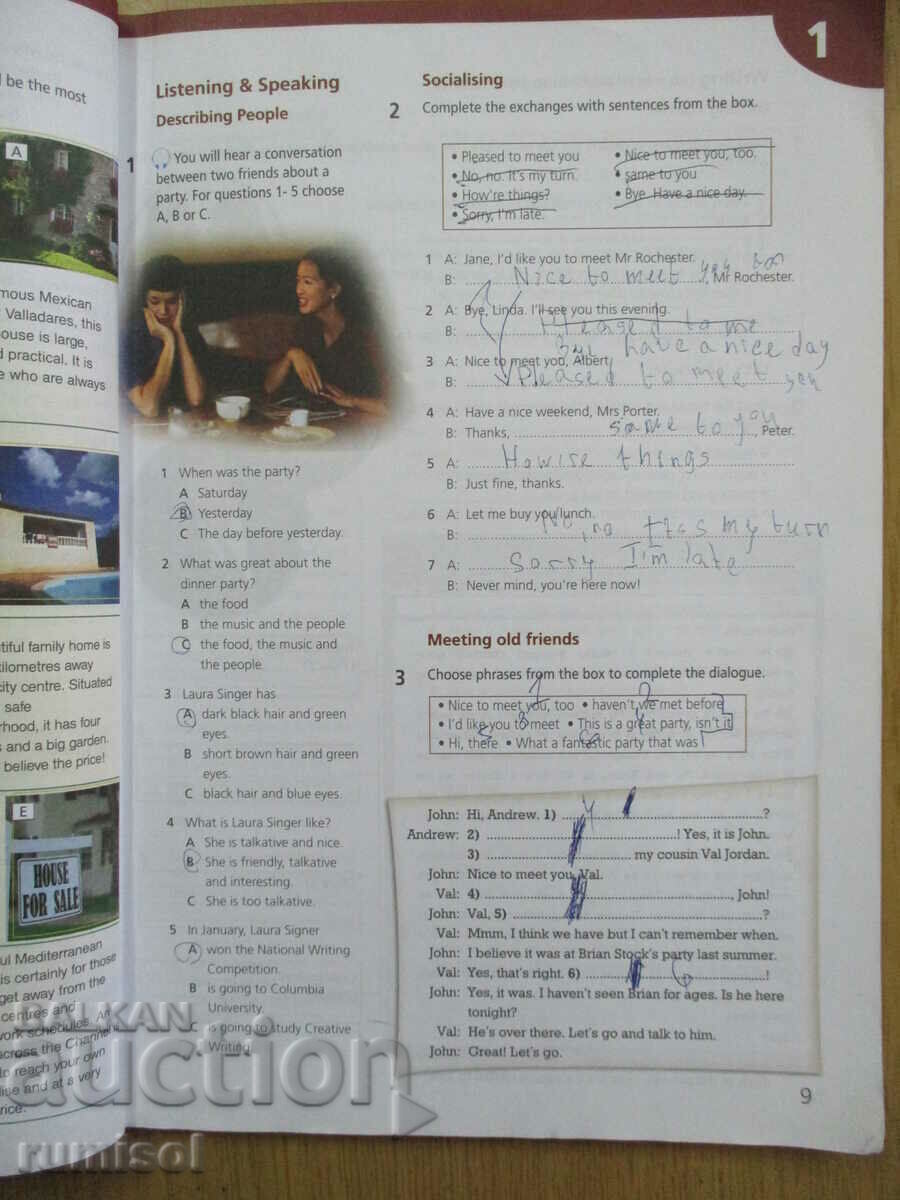 l be the most
A
mous Mexican
Valladares, this
ouse is large,
d practical. It is
e who are always
tiful family home is
kilometres away
city centre. Situated
safe
rhood, it has four
s and a big garden.
believe the price!
E
HOUSE
FOR SALE
ul Mediterranean
is certainly for those
get away from the
centres and
work schedules. An
across the Channel
to reach your own
lise and at a very
rice.
1
Listening & Speaking
Describing People
1 You will hear a conversation
between two friends about a
party. For questions 1- 5 choose
A, B or C.
1 When was the party?
A Saturday
B Yesterday
C The day before yesterday.
2 What was great about the
dinner party?
A the food
B the music and the people
C the food, the music and
the people
3 Laura Singer has
A dark black hair and green
eyes.
B short brown hair and green
eyes.
C black hair and blue eyes.
4 What is Laura Singer like?
A She is talkative and nice.
B She is friendly, talkative
and interesting.
C She is too talkative.
5 In January, Laura Signer
A won the National Writing
Competition.
B is going to Columbia
University.
C is going to study Creative
Writing
Socialising
2 Complete the exchanges with sentences from the box.
• Pleased to meet you
• No, no. It's my turn.
• How're things?
• Sorry, I'm late.
• Nice to meet you, too.
• same to you
• Bye. Have a nice day.
1 A: Jane, I'd like you to meet Mr Rochester.
B: Nice to meet you too, Mr Rochester.
2 A: Bye, Linda. I'll see you this evening.
B: Pleased to me
have a nice day
3 A: Nice to meet you, Albert.
B: Pleased to meet you
4 A: Have a nice weekend, Mrs Porter.
B: Thanks, same to you, Peter.
5 A: Howise things
B: Just fine, thanks.
6 A: Let me buy you lunch.
B: No, no Its my turn
7 A: Sorry I'm late
B: Never mind, you're here now!
Meeting old friends
3 Choose phrases from the box to complete the dialogue.
• Nice to meet you, too • haven't we met before
• I'd like you to meet • This is a great party, isn't it
• Hi, there • What a fantastic party that was
1 2 3 4 5 6
John: Hi, Andrew. 1) ?
Andrew: 2) ! Yes, it is John.
3) my cousin Val Jordan.
John: Nice to meet you, Val.
Val: 4) , John!
John: Val, 5) ?
Val: Mmm, I think we have but I can't remember when.
John: I believe it was at Brian Stock's party last summer.
Val: Yes, that's right. 6) !
John: Yes, it was. I haven't seen Brian for ages. Is he here
tonight?
Val: He's over there. Let's go and talk to him.
John: Great! Let's go.
9
BALKAN
auction
rumisol